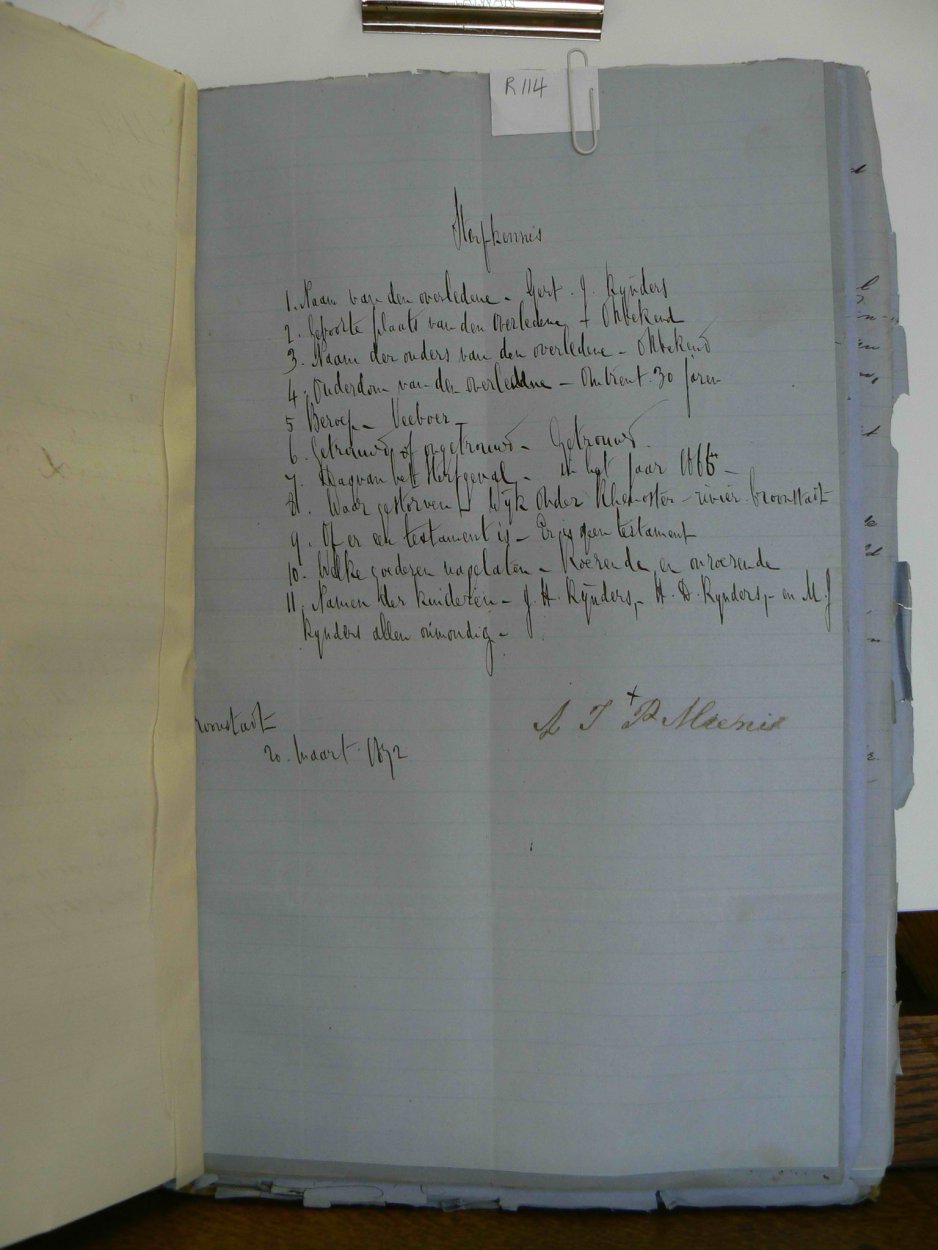 R 114
Sterfkennis
1. Naam van den overledene - Gert. J. Rynders
2. Geboorte plaats van den overledene - Onbekend
3. Naam der ouders van den overledene - Onbekend
4. Ouderdom van den overledene - Omtrent 30 jaren
5 Beroep - Veeboer -
6. Getrouwd of ongetrouwd - Getrouwd -
7. Dag van het Sterfgeval - in het jaar -
8. Waar gestorven - Wyk Onder Rhenoster - rivier
9. Of er een testament is - Er is geen testament
10. Welke goederen nagelaten - Roerende en onroerende
11. Namen der kinderen - J. H. Rynders, - H. D. Rynders, - en M. J
Rynders allen onmondig -
roonstadt
20. Maart 1872
J P